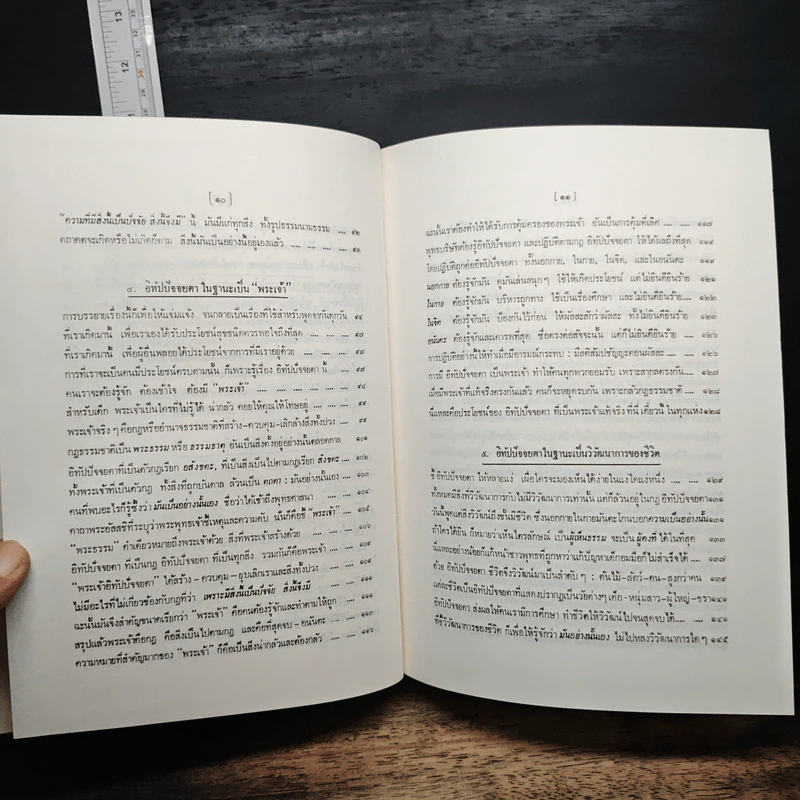 [ ๑๐ ]
"ความที่มีสิ่งนี้เป็นปัจจัย สิ่งนี้จึงมี" นี้ มันมีแก่ทุกสิ่ง ทั้งรูปธรรมนามธรรม .... ๙๒
ตถาคตจะเกิดหรือไม่เกิดก็ตาม สิ่งนี้มันเป็นอย่างนี้อยู่เองแล้ว .... .... .... .... ๙๓
๔. อิทัปปัจจยตา ในฐานะเป็น "พระเจ้า"
การบรรยายเรื่องนี้ก็เพื่อให้แจ่มแจ้ง จนกลายเป็นเรื่องที่ใช้สำหรับพูดจากันทุกวัน ๙๕
ที่เราเกิดมานี้ เพื่อเราเองได้รับประโยชน์สุขชนิดควรพอใจถึงที่สุด .... ....
ที่เราเกิดมานี้ เพื่อผู้อื่นพลอยได้ประโยชน์จากการที่มีเราอยู่ด้วย .... .... ....
การที่เราจะเป็นคนมีประโยชน์ครบตามนั้น ก็เพราะรู้เรื่อง อิทัปปัจจยตา นี้
คนเราจะต้องรู้จัก ต้องเข้าใจ ต้องมี "พระเจ้า" .... .... .... .... .... ๙๘
สำหรับเด็ก พระเจ้าเป็นใครที่ไม่รู้ได้ น่ากลัว คอยให้คุณให้โทษอยู่ .... ....
พระเจ้าจริง ๆ คือกฎหรืออำนาจธรรมชาติที่สร้าง-ควบคุม-เลิกล้างสิ่งทั้งปวง ....
กฎธรรมชาติเป็น พระธรรม หรือ ธรรมธาตุ อันเป็นสิ่งตั้งอยู่อย่างนั้นตลอดกาล ๑๐๑
อิทัปปัจจยตาที่เป็นตัวกฎเรียก อสังขตะ, ที่เป็นสิ่งเป็นไปตามกฎเรียก สังขตะ ....
ทั้งพระเจ้าที่เป็นตัวกฎ ทั้งสิ่งที่ถูกบันดาล ล้วนเป็น ตถาตา : มันอย่างนั้นเอง ๑๐๓
คนที่พบอะไรก็รู้ซึ้งว่า มันเป็นอย่างนั้นเอง ชื่อว่าได้เข้าถึงพุทธศาสนา .... ๑๐๔
คาถาพระอัสสชิที่ระบุว่าพระพุทธเจ้าชี้เหตุและความดับ นั้นก็คือชี้ "พระเจ้า" ๑๐๕
"พระธรรม" คำเดียวหมายถึงพระเจ้าด้วย สิ่งที่พระเจ้าสร้างด้วย .... .... ๑๐๖
อิทัปปัจจยตา ที่เป็นกฎ อิทัปปัจจยตา ที่เป็นทุกสิ่ง รวมกันก็คือพระเจ้า ....
"พระเจ้าอิทัปปัจจยตา" ได้สร้าง - ควบคุม - ยุบเลิกเราและสิ่งทั้งปวง .... ....
ไม่มีอะไรที่ไม่เกี่ยวข้องกับกฎที่ว่า เพราะมีสิ่งนี้เป็นปัจจัย สิ่งนี้จึงมี .... ๑๑๑
ฉะนั้นมันจึงสำคัญขนาดเรียกว่า "พระเจ้า" คือคนต้องรู้จักและทำตามให้ถูก ....
สรุปแล้วพระเจ้าคือกฎ คือสิ่งเป็นไปตามกฎ และคือที่สุดจบ - อนันตะ .... .... ๑๑๓
ความหมายที่สำคัญมากของ "พระเจ้า" ก็คือเป็นสิ่งน่ากลัวและต้องกลัว .... .... ๑๑๖
[ ๑๑ ]
ฉะนั้นเราต้องทำให้ได้รับการคุ้มครองของพระเจ้า อันเป็นการคุ้มที่เลิศ .... .... ๑๑๗
พุทธบริษัทต้องรู้อิทัปปัจจยตา และปฏิบัติตามกฎ อิทัปปัจจยตา ให้ได้ผลถึงที่สุด ๑๑๙
โดยปฏิบัติถูกต่ออิทัปปัจจยตา ทั้งนอกกาย, ในกาย, ในจิต, และในอนันตะ
นอกกาย ต้องรู้จักมัน ดูมันเล่นสนุกๆ ใช้ให้เกิดประโยชน์ แต่ไม่ยินดียินร้าย ๑๒๑
ในกาย ต้องรู้จักมัน บริหารถูกทาง ใช้เป็นเรื่องศึกษา และไม่ยินดียินร้าย....
ในจิต ต้องรู้จักมัน ป้องกันไว้ก่อน ให้ผัสสะสักว่าผัสสะ ทั้งไม่ยินดียินร้าย
อนันตะ ต้องรู้จักและเคารพที่สุด ซื่อตรงต่อสัจจะนั้น แต่ก็ไม่ยินดียินร้าย .... ๑๒๖
การปฏิบัติอย่างนี้ให้ทำเมื่อมีอารมณ์กระทบ : มีสติสัมปชัญญะตอนผัสสะ ....
การมี อิทัปปัจจยตา เป็นพระเจ้า ทำให้คนทุกพวกยอมรับ เพราะสากลตรงกัน ....
เมื่อมีพระเจ้าที่แท้จริงตรงกันแล้ว คนก็จะหยุดรบกัน เพราะกลัวกฎธรรมชาติ ๑๒๘
นี่แหละคือประโยชน์ของ อิทัปปัจจยตา ที่เป็นพระเจ้าแท้จริง ที่นี่ เดี๋ยวนี้ ในทุกแห่ง ๑๒๘
๕. อิทัปปัจจยตาในฐานะเป็นวิวัฒนาการของชีวิต
ชี้ อิทัปปัจจยตา ให้หลายแง่ เผื่อใครจะมองเห็นได้ง่ายในแง่ใดแง่หนึ่ง.... ....
ทั้งหมดมีสิ่งที่วิวัฒนาการกับไม่มีวิวัฒนาการเท่านั้น แต่ก็ล้วนอยู่ในกฎ อิทัปปัจจยตา ๑๓๑
วันนี้พูดแต่ที่วิวัฒน์ถึงขั้นมีชีวิต ซึ่งนอกกายในกายมันตะโกนบอกความเป็นอย่างนั้น ๑๓๓
ถ้าใครได้ยิน ก็หมายว่าเห็นไตรลักษณ์ เป็นผู้เห็นธรรม จะเป็น ผู้คงที่ ได้ในที่สุด
นี่แหละอย่างน้อยก็แก้หน้าชาวพุทธที่ถูกหาว่าแก้ปัญหาเด็กอมมือก็ไม่สำเร็จได้ ....
ด้วย อิทัปปัจจยตา ชีวิตจึงวิวัฒน์มาเป็นลำดับๆ : ต้นไม้-สัตว์-คน-สูงกว่าคน ๑๓๙
และชีวิตเป็นอิทัปปัจจยตาที่แสดงปรากฏเป็นวัยต่างๆ เด็ก-หนุ่มสาว-ผู้ใหญ่-ชรา
อิทัปปัจจยตา ส่งผลให้คนเรามีการศึกษา ทำชีวิตให้วิวัฒน์ไปจนสุดจบได้.... .... ๑๔๑
ที่ชี้วิวัฒนาการของชีวิต ก็เพื่อให้รู้จักว่า มันอย่างนั้นเอง ไม่ไปหลงวิวัฒนาการใดๆ ๑๔๕